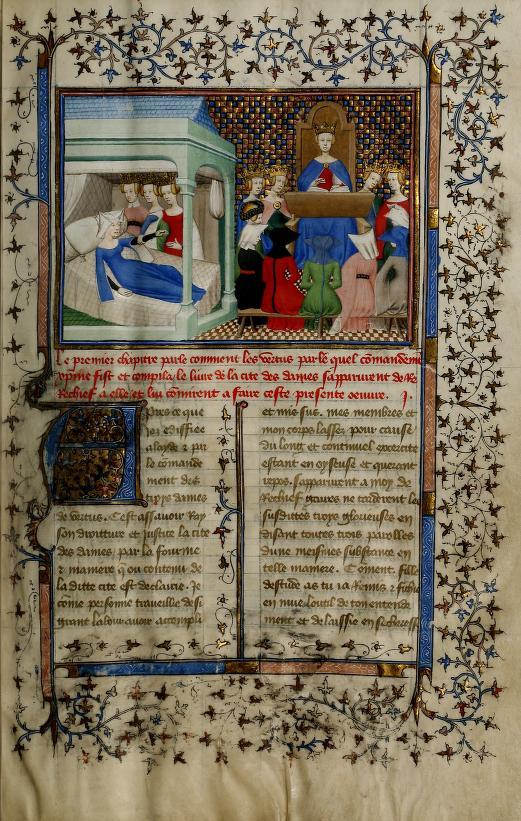 Le premier chapitre parle comment les vertus par le quel comandement
xpine fist et compila le livre de la cite des dames sapparurent de Re
Rechief a elle et lui commirent a faire ceste presente oeuvre. J.
Apres ce que
ioz ediffiee
a layde z par
le comande
ment des
trois dames
de vertus. Cest assavoir Ray
son droitture et Justice la cite
des dames par la fourme
z maniere q̄ ou contenu de
la ditte cite est declairie. Je
come personne traveillie de si
grant labour avoir acompli
et mis sus. mes membres et
mon corps lassez pour cause
du long et continuel excercite
estant en oyseuse et querant
repos. sapparurent a moy de
Rechief gaires ne tardirent les
susdittes trois glorieuses en
disant toutes trois parolles
dune meismes substance en
telle maniere. Coment. fille
destude as tu ia Remis z fichie
en mue loutil de ton entende
ment et delaissie en secheresse